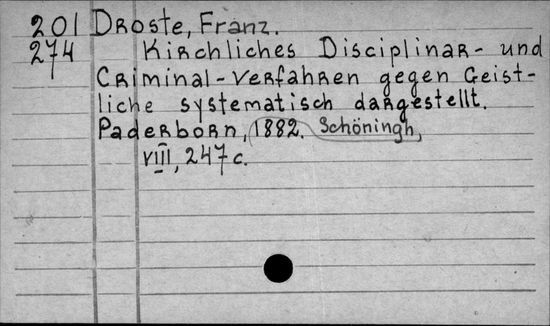 201 Droste, Franz.
274 Kirchliches Disciplinar- und
Criminal-Verfahren gegen Geist-
liche systematisch dargestellt.
Paderborn, 1882. Schöningh,
VIII, 247 c.